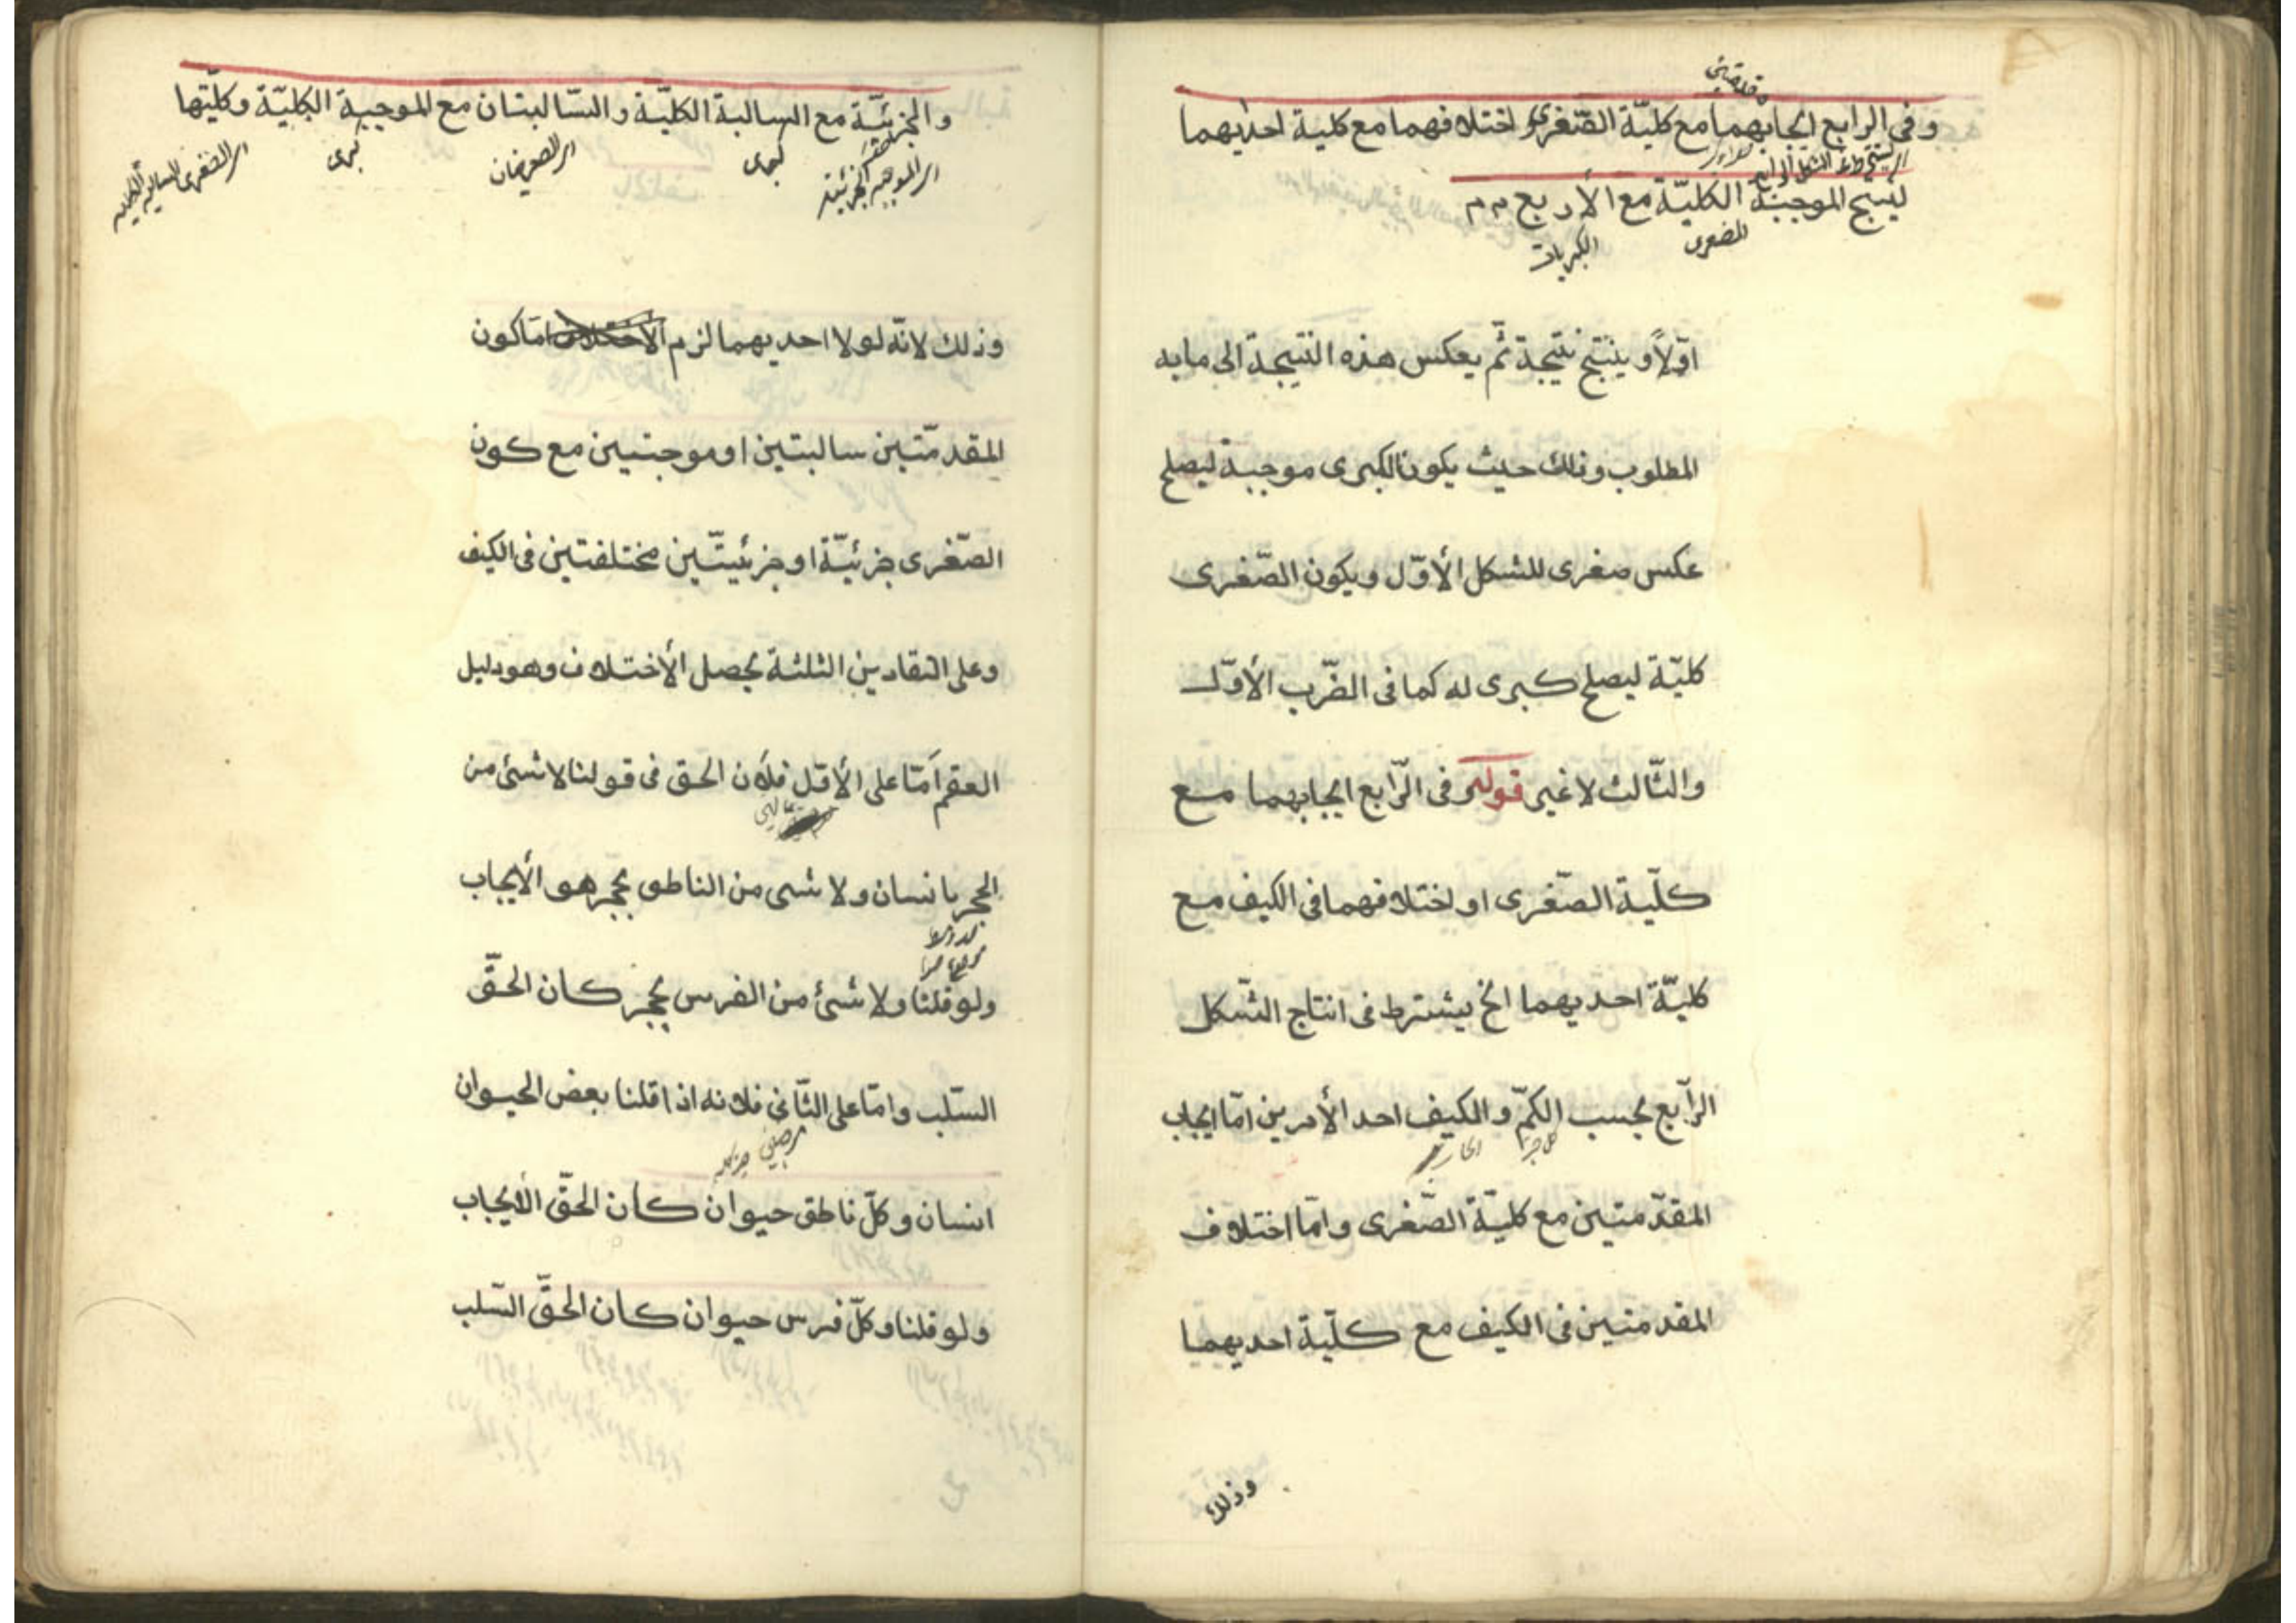 وفى الرابع ايجابهما مع كليّة الصّغرى او اختلافهما مع كلية احديهما
لينتج الموجبة الكليّة مع الأربع
الصغرى
الكبريات
اوّلاً وينتج نتيجة ثمّ يعكس هذه النتيجة الى ما به
المطلوب وذلك حيث يكون الكبرى موجبة ليصلح
عكس صغرى للشكل الأوّل ويكون الصّغرى
كليّة ليصلح كبرى له كما فى الضّرب الأوّل
والثّالث لا غير قوله وفى الرّابع ايجابهما مع
كلّية الصّغرى او اختلافهما فى الكيف مع
كليّة احديهما الخ يشترط فى انتاج الشّكل
الرّابع بحسب الكمّ والكيف احد الأمرين امّا ايجاب
المقدّمتين مع كليّة الصّغرى وامّا اختلاف
المقدمتين فى الكيف مع كلّية احديهما
وذلك
والجزئيّة مع السالبة الكليّة والسّالبتان مع الموجبة الكليّة وكليّتها
اى الموجبة الجزئية
كبرى
اى الصغريان
كبرى
اى الصغرى السالبة الكلية
وذلك لانّه لولا احديهما لزم امّا كون
المقدمّتين سالبتين او موجبتين مع كون
الصّغرى جزئيّة او جزئيتّين مختلفتين فى الكيف
وعلى التقادير الثلثة يحصل الأختلاف وهو دليل
العقم امّا على الأوّل فلأن الحق فى قولنا لا شئ من
الحجر بانسان ولا شى من الناطق بحجر هو الأيجاب
ولو قلنا ولا شئ من الفرس بحجر كان الحقّ
السّلب وامّا على الثّانى فلانه اذا قلنا بعض الحيوان
انسان وكلّ ناطق حيوان كان الحقّ الأيجاب
ولو قلنا وكلّ فرس حيوان كان الحقّ السّلب